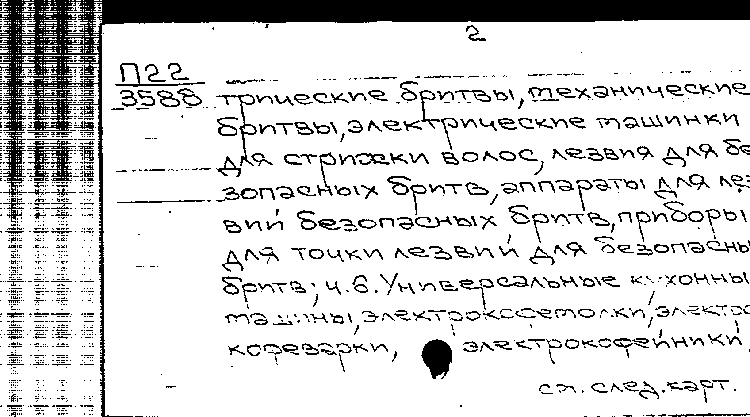 2
П22
3588 трические бритвы, механические
бритвы, электрические машинки
для стрижки волос, лезвия для бе
зопасных бритв, аппараты для лез
вий безопасных бритв, приборы
для точки лезвий для безопасны
бритв; ч.6. Универсальные кухонны
машины, электрокофемолки, электро
кофеварки, электрокофейники,
см. след. карт.